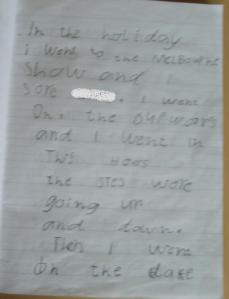 In the holiday
i went to the Melbourne
Show and I
sore . I went
On. the
and I went in
This Hoos
the stes wore
going up
and down.
Then I went
On the